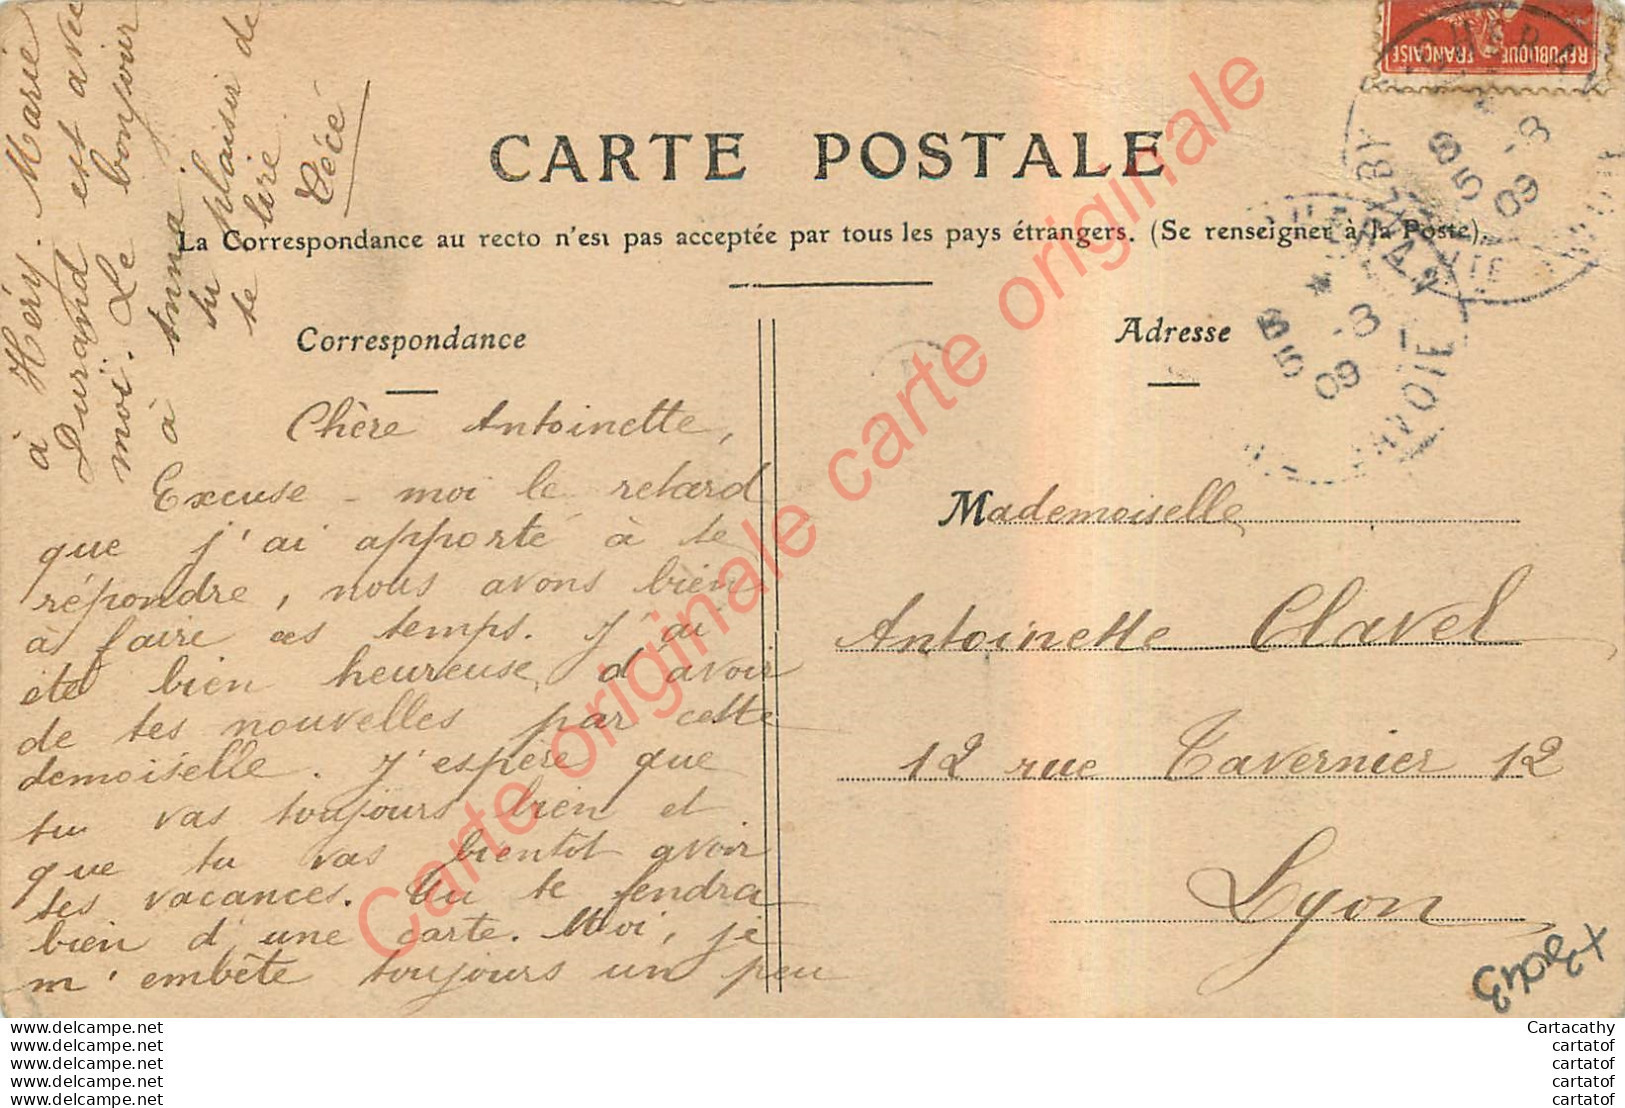 CARTE POSTALE
La Correspondance au recto n'est pas acceptée par tous les pays étrangers. (Se renseigner à la Poste).
Correspondance
Chère Antoinette,
Excuse-moi le retard
que j'ai apporté à te
répondre, nous avons bien
à faire ces temps. J'ai
été bien heureuse d'avoir
de tes nouvelles par cette
demoiselle. J'espère que
tu vas toujours bien et
que tu vas bientôt avoir
tes vacances. Tu te fendra
bien d'une carte. Moi, je
m'embête toujours un peu
à Héry. Marie
Durand est avec
moi. Le bonjour
à Anna.
Au plaisir de
te lire
Cécé
Adresse
Mademoiselle
Antoinette Clavel
12 rue Tavernier 12
Lyon
REPUBLIQUE FRANÇAISE
ALBY
5 -8
09
5 -8
09
SAVOIE
Carte originale carte originale carte originale
www.delcampe.net
www.delcampe.net
www.delcampe.net
www.delcampe.net
www.delcampe.net
Cartacathy
cartatof
cartatof
cartatof
cartatof